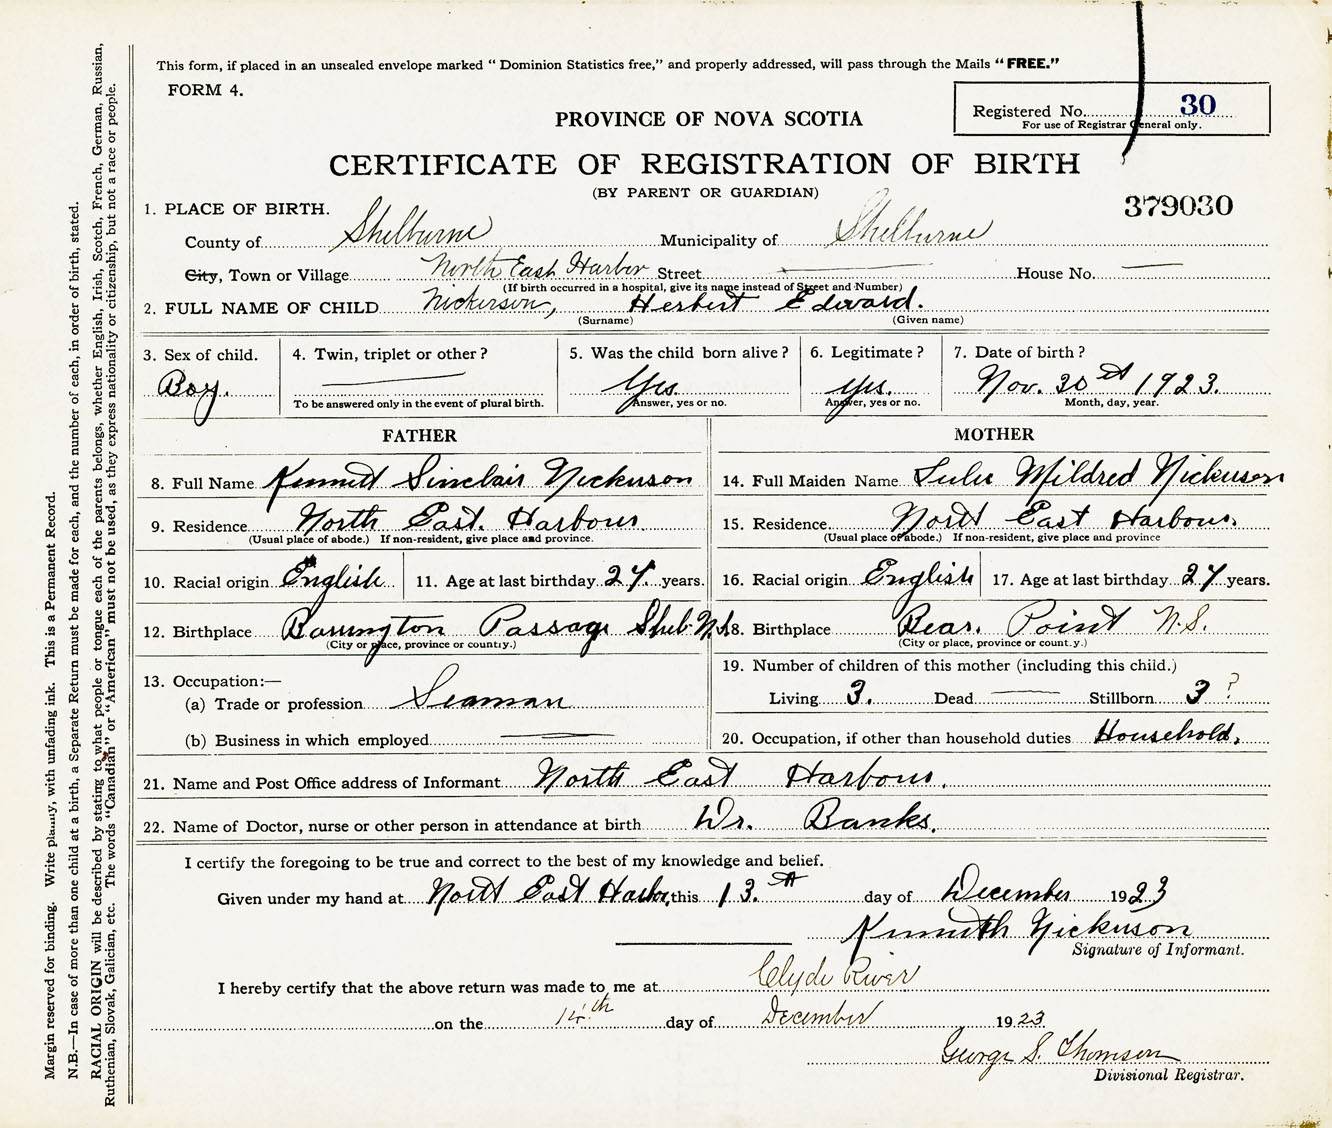 This form, if placed in an unsealed envelope marked “ Dominion Statistics free,” and properly addressed, will pass through the Mails “ FREE.”
FORM 4.
Registered No. 30
For use of Registrar General only.
PROVINCE OF NOVA SCOTIA
CERTIFICATE OF REGISTRATION OF BIRTH
(BY PARENT OR GUARDIAN)
379030
1. PLACE OF BIRTH.
County of Shelburne Municipality of Shelburne
City, Town or Village North East Harbor Street House No.
(If birth occurred in a hospital, give its name instead of Street and Number)
2. FULL NAME OF CHILD Nickerson, Herbert Edward.
(Surname) (Given name)
3. Sex of child. Boy.
4. Twin, triplet or other ?
To be answered only in the event of plural birth.
5. Was the child born alive ? Yes.
Answer, yes or no.
6. Legitimate ? yes.
Answer, yes or no.
7. Date of birth ? Nov. 30th 1923.
Month, day, year.
FATHER
8. Full Name Kenneth Sinclair Nickerson
9. Residence North East. Harbour.
(Usual place of abode.) If non-resident, give place and province.
10. Racial origin English 11. Age at last birthday 24 years.
12. Birthplace Barrington Passage Shel. N.S.
(City or place, province or country.)
13. Occupation:—
(a) Trade or profession Seaman
(b) Business in which employed
MOTHER
14. Full Maiden Name Lulu Mildred Nickerson
15. Residence North East Harbour.
(Usual place of abode.) If non-resident, give place and province
16. Racial origin English 17. Age at last birthday 24 years.
18. Birthplace Bear. Point N.S.
(City or place, province or count.y.)
19. Number of children of this mother (including this child.)
Living 3. Dead Stillborn 3 ?
20. Occupation, if other than household duties Household.
21. Name and Post Office address of Informant North East Harbour.
22. Name of Doctor, nurse or other person in attendance at birth Dr. Banks.
I certify the foregoing to be true and correct to the best of my knowledge and belief.
Given under my hand at North East Harbor, this 13.th day of December 1923
Kenneth Nickerson
Signature of Informant.
I hereby certify that the above return was made to me at Clyde River
on the 14th day of December 1923
George S. Thomson
Divisional Registrar.
Margin reserved for binding. Write plainly, with unfading ink. This is a Permanent Record.
N.B.—In case of more than one child at a birth, a Separate Return must be made for each, and the number of each, in order of birth, stated.
RACIAL ORIGIN will be described by stating to what people or tongue each of the parents belongs, whether English, Irish, Scotch, French, German, Russian,
Ruthenian, Slovak, Galician, etc. The words “Canadian” or “American” must not be used, as they express nationality or citizenship, but not a race or people.